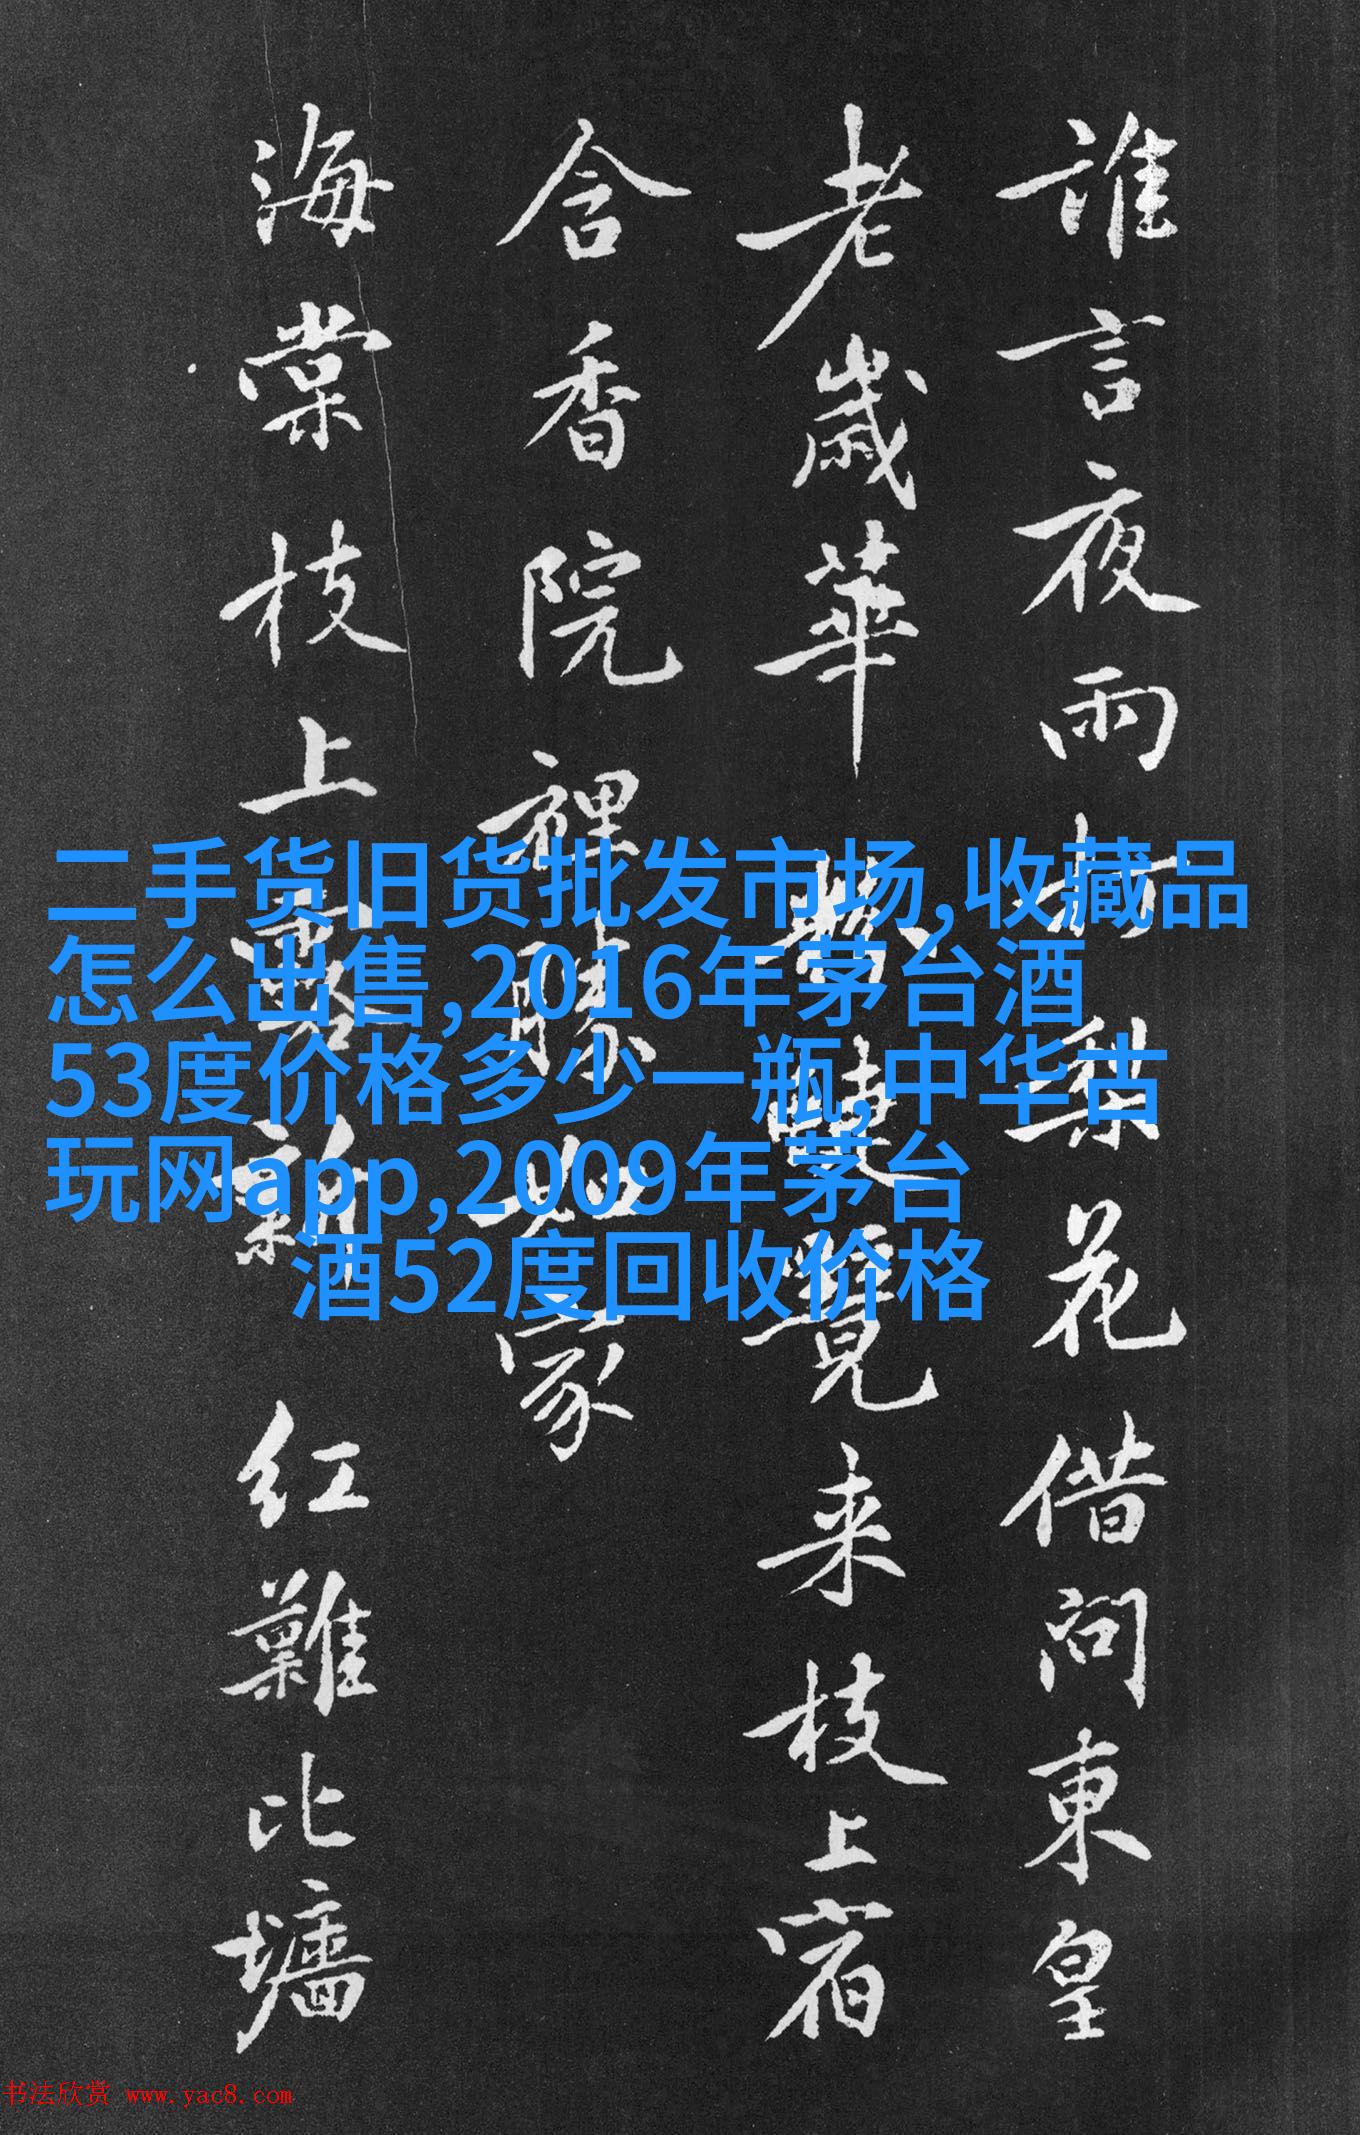 誰言夜雨打梨花借問東皇
老歲華雙覽来枝上宿
含香院裡勝如家
海棠枝上露新红難比墻
二手货旧货批发市场,收藏品
怎么出售,2016年茅台酒
53度价格多少一瓶,中华古
玩网app,2009年茅台
酒52度回收价格
书法欣赏 www.yac8.com